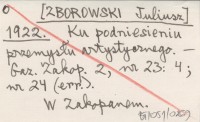 [ZBOROWSKI Juliusz]
1922. Ku podniesieniu
przemysłu artystycznego. –
Gaz. Zakop. 2, nr 23: 4;
nr 24 (err.).
W Zakopanem.